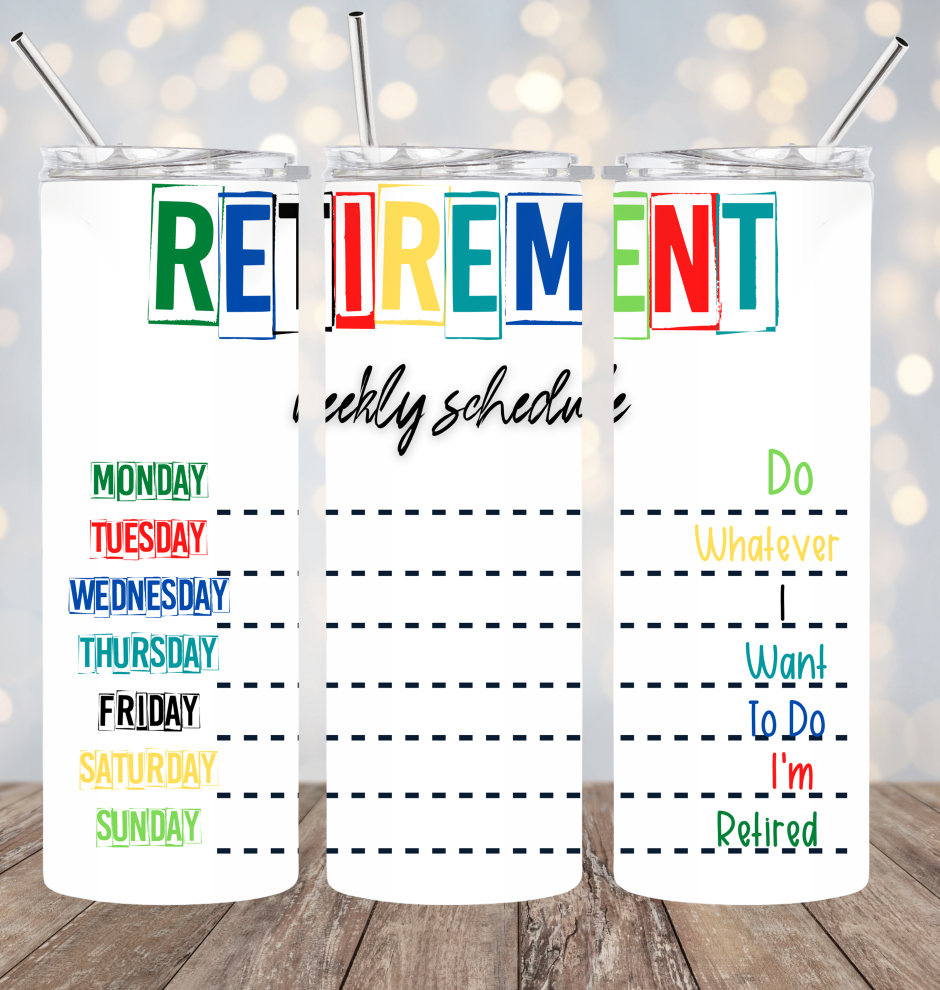 RETIREMENT
weekly schedule
MONDAY Do
TUESDAY Whatever
WEDNESDAY I
THURSDAY Want
FRIDAY To Do
SATURDAY I'm
SUNDAY Retired